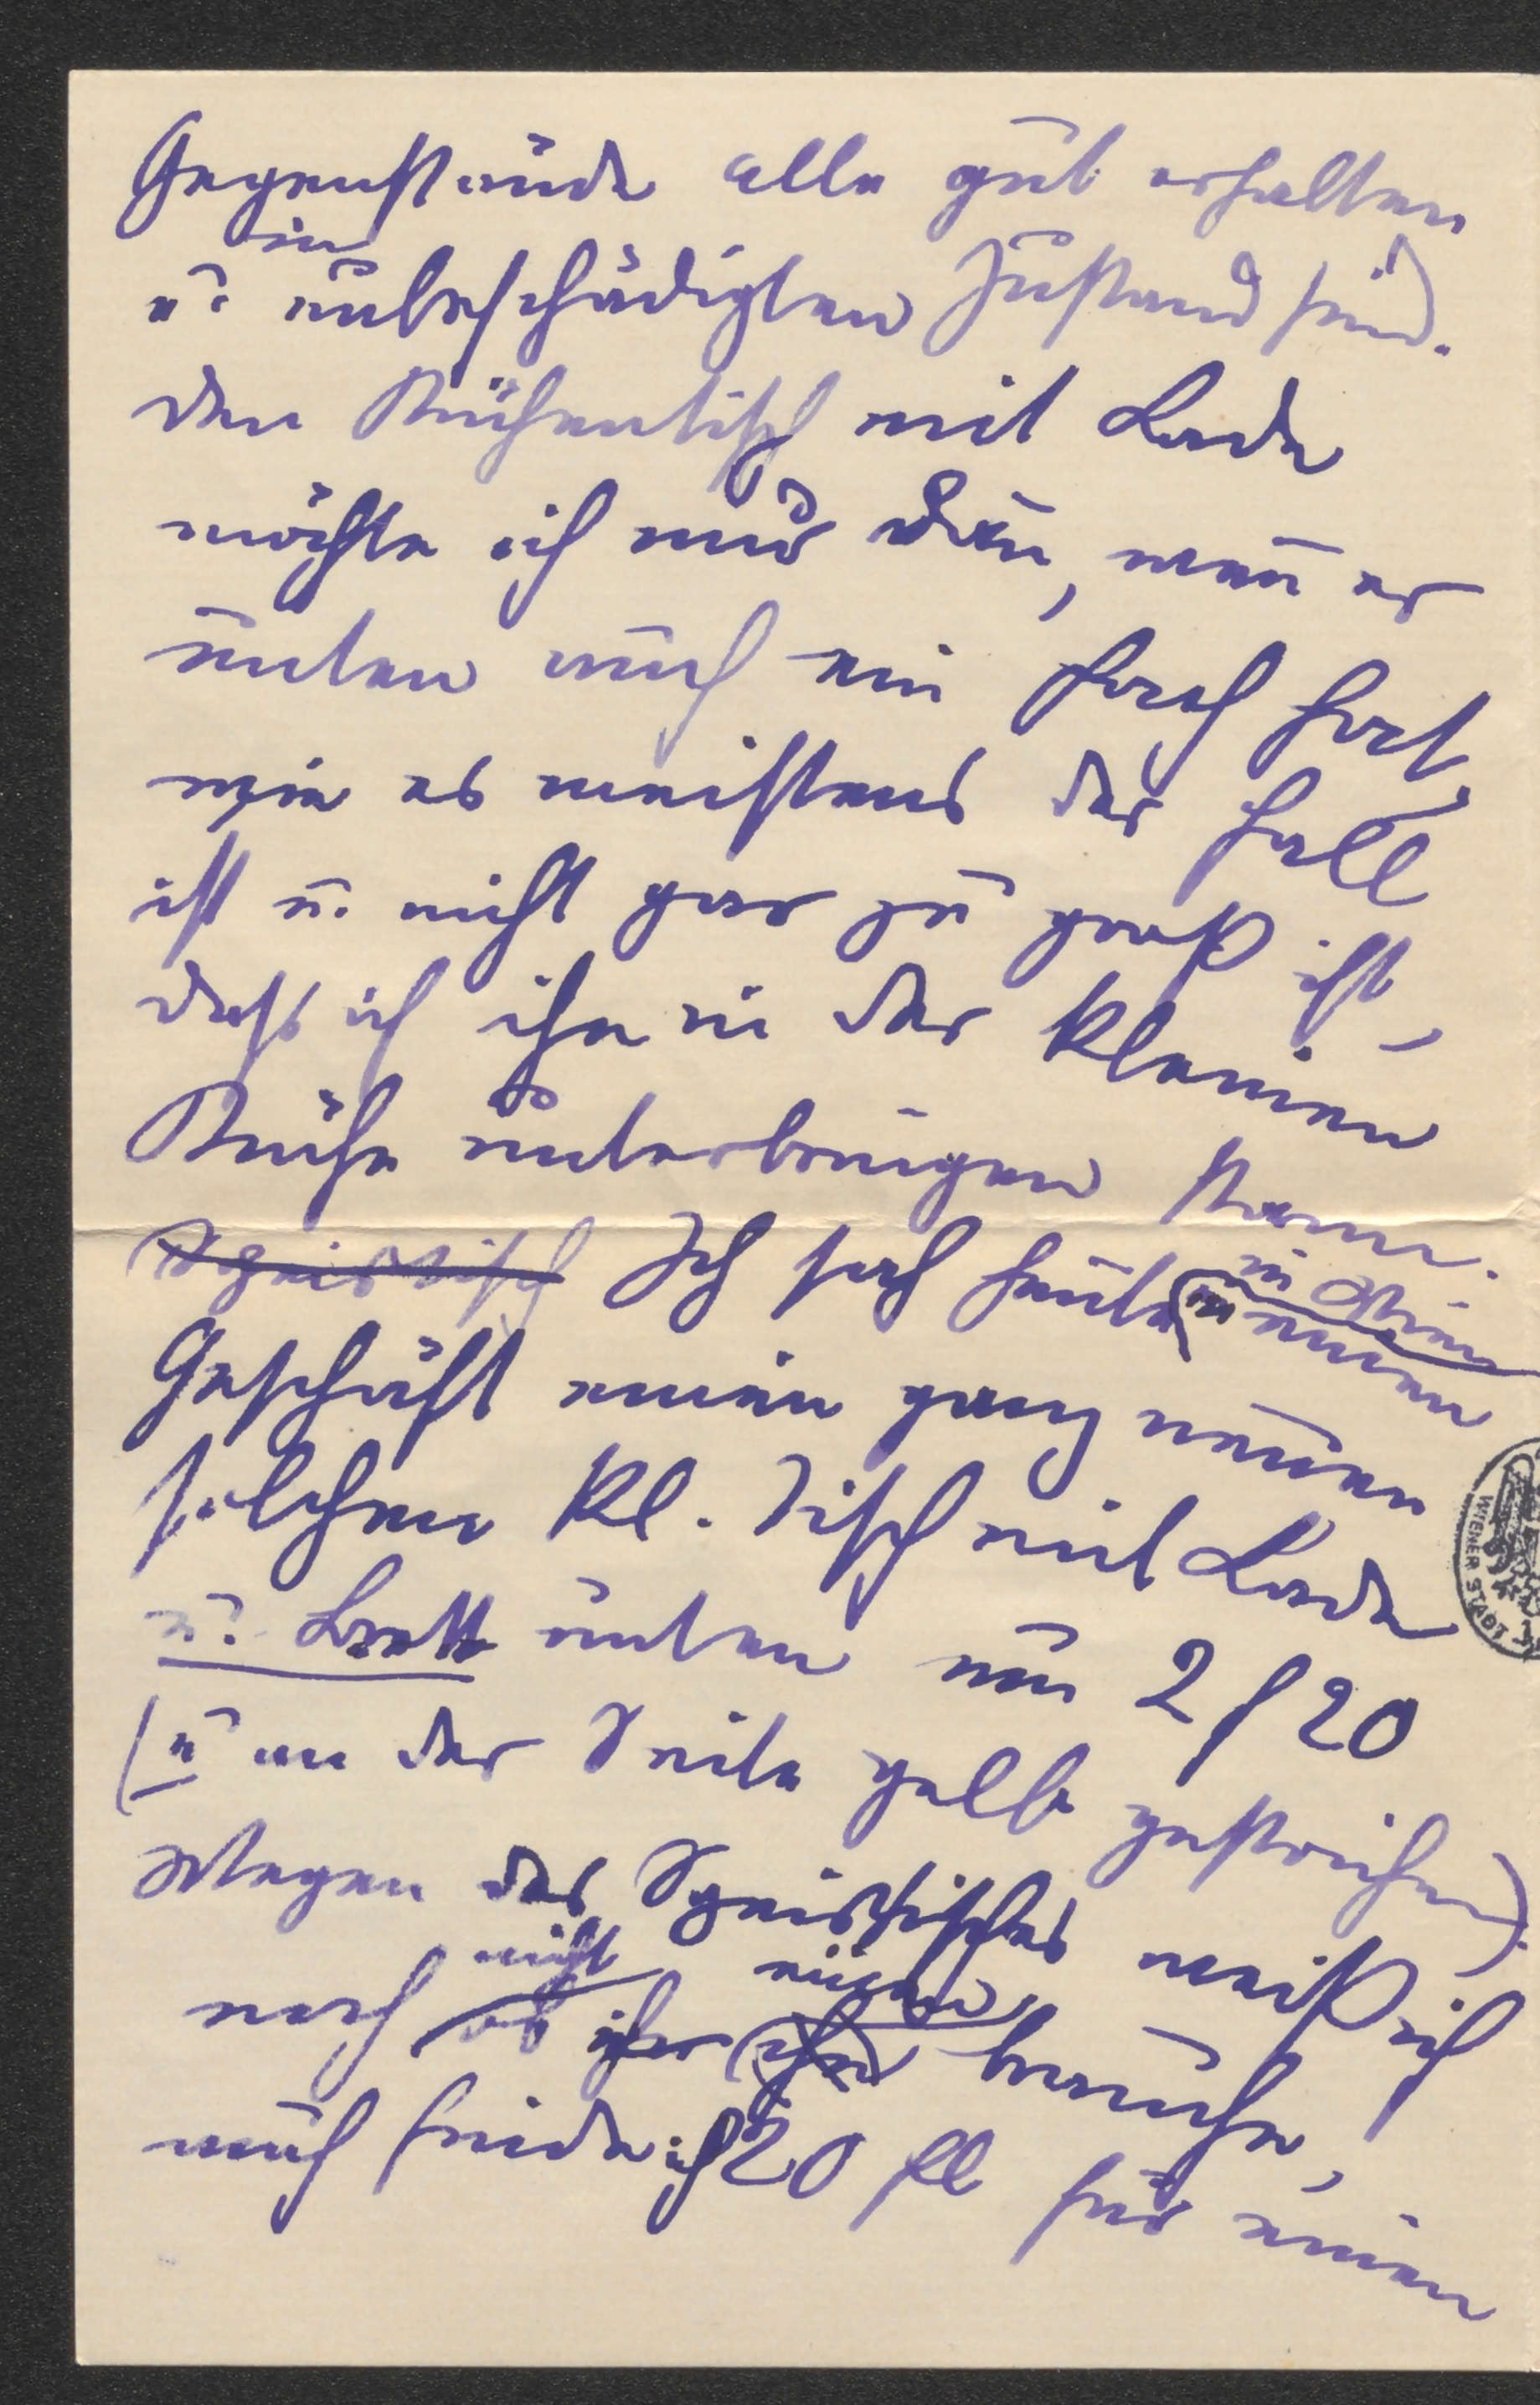 Gegenstände alle gut erhalten
u. in unbeschädigten Zustand sind.
Den Küchentisch mit Lade
möchte ich nur dann, wenn er
unten auch ein Fach hat,
wie es meistens der Fall
ist u. nicht gar zu groß ist,
dass ich ihn in der kleinen
Küche unterbringen kann.
Speistisch Ich sah heute (in Wien in einem
Geschäft einen ganz neuen
solchen kl. Tisch mit Lade
u. Brett unten um 2 f 20
(u an der Seite gelb gestrichen).
Wegen des Speistisches weiß ich
noch nicht ob ich einen brauche,
auch finde ich 20 fl für einen
WIENER STADT